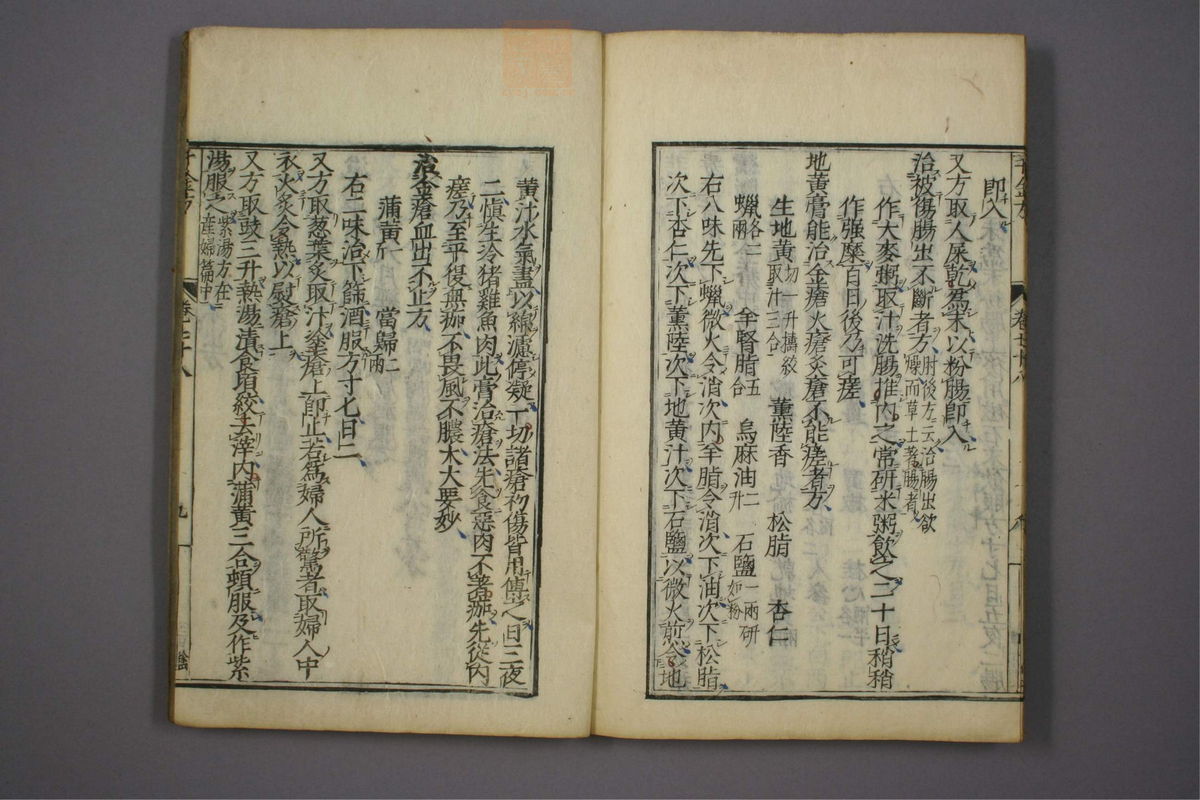 即入
又方取人屎乾為末以粉腸即入
治被傷腸出不斷者方肘後方云治腸出欲
燥而草土著腸者
作大麥粥取汁洗腸推內之常研米粥飲之二十日稍稍
作強糜百日後乃可瘥
地黃膏能治金瘡火瘡灸瘡不能瘥者方
生地黃切一升擣絞
取汁三合 薰陸香 松脂 杏仁
蠟各二
兩 羊腎脂五
合 烏麻油二
升 石鹽一兩研
如粉
右八味先下蠟微火令消次內羊脂令消次下油次下松脂
次下杏仁次下薰陸次下地黃汁次下石鹽以微火煎令地
黃汁水氣盡以綿濾停凝一切諸瘡初傷皆用傅之日三夜
二慎生冷豬雞魚肉此膏治瘡法先食惡肉不著痂先從內
瘥乃至平復無痂不畏風不膿大大要妙
治金瘡血出不止方
蒲黃一斤 當歸二
兩
右二味治下篩酒服方寸匕日二
又方取蔥葉炙取汁塗瘡上即止若為婦人所驚者取婦人中
衣火炙令熱以熨瘡上
又方取豉三升熱湯漬食頃絞去滓內蒲黃三合頓服及作紫
湯服之紫湯方在
產婦篇中
卷二十八
九